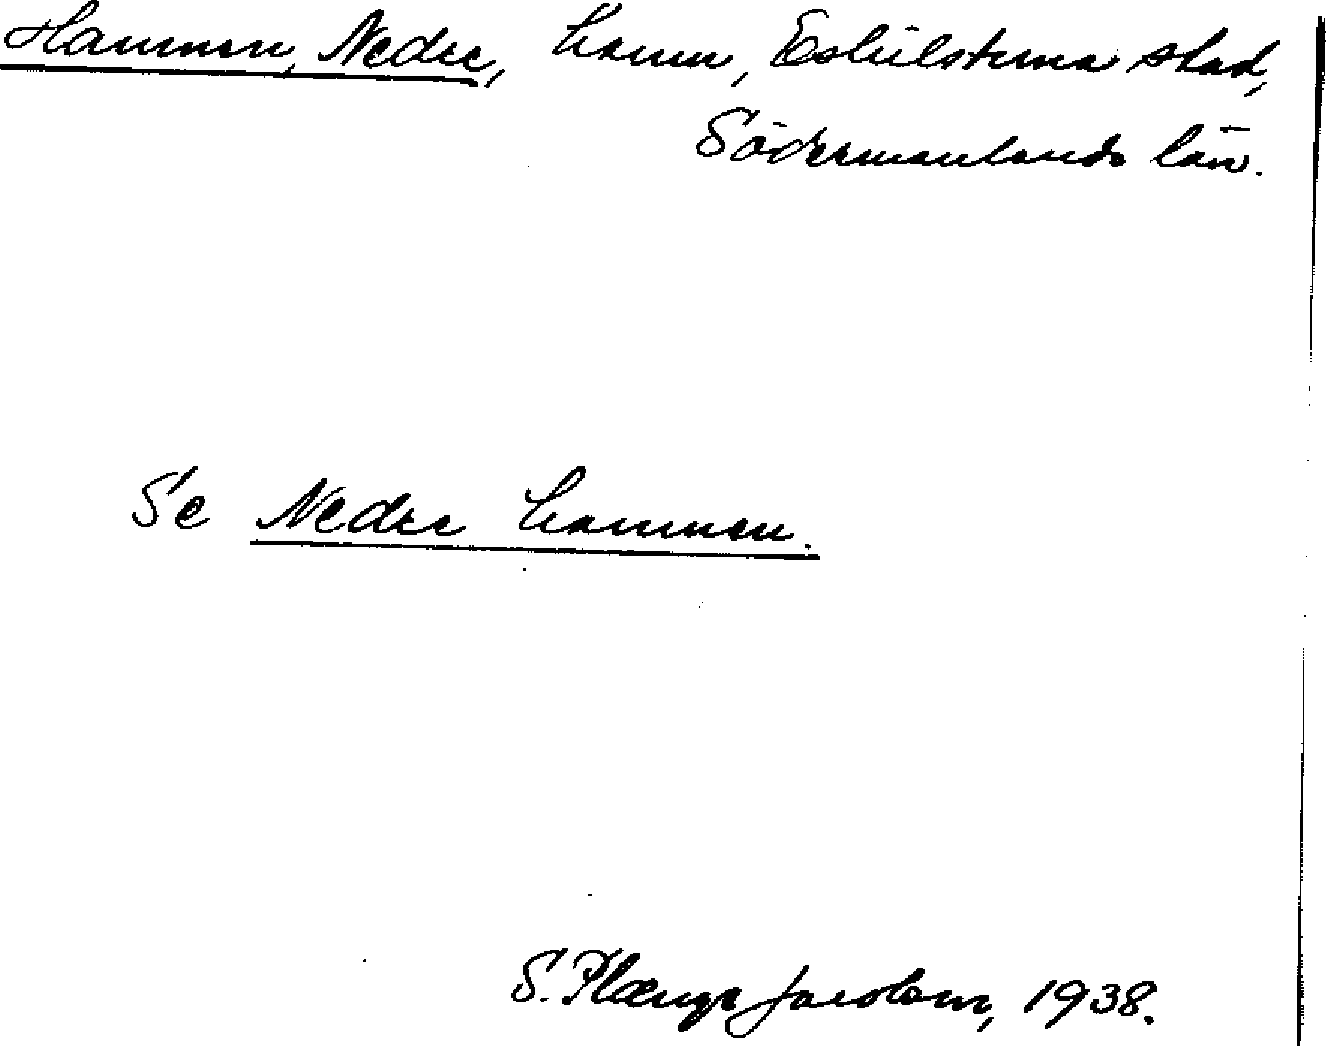 Hammen, Nedre, hamn, Eskilstuna stad,
Södermanlands län.
Se Nedre hammen.
S. Plænge Jacobson, 1938.